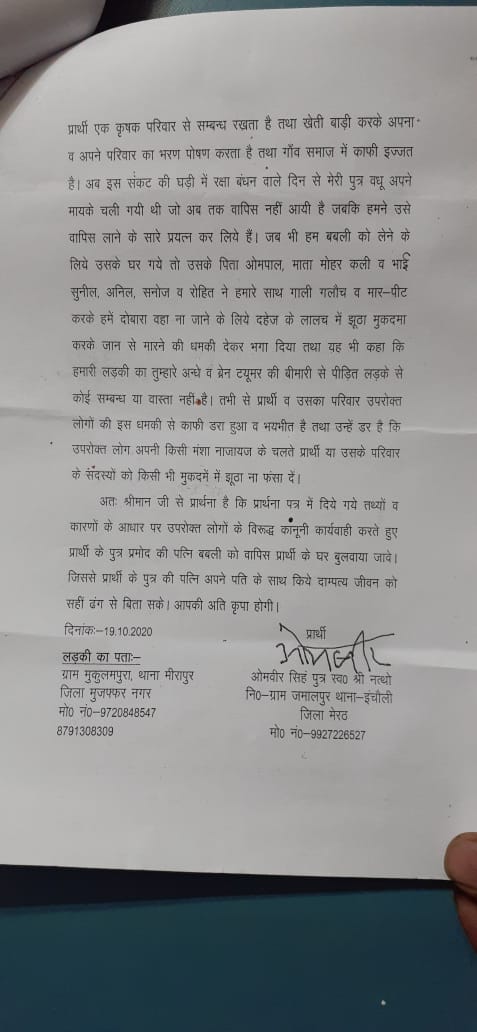 प्रार्थी एक कृषक परिवार से सम्बन्ध रखता है तथा खेती बाड़ी करके अपना
व अपने परिवार का भरण पोषण करता है तथा गाँव समाज में काफी इज्जत
है। अब इस संकट की घड़ी में रक्षा बंधन वाले दिन से मेरी पुत्र वधू अपने
मायके चली गयी थी जो अब तक वापिस नहीं आयी है जबकि हमने उसे
वापिस लाने के सारे प्रयत्न कर लिये हैं। जब भी हम बबली को लेने के
लिये उसके घर गये तो उसके पिता ओमपाल, माता मोहर कली व भाई
सुनील, अनिल, सनोज व रोहित ने हमारे साथ गाली गलौच व मार–पीट
करके हमें दोबारा वहा ना जाने के लिये दहेज के लालच में झूठा मुकदमा
करके जान से मारने की धमकी देकर भगा दिया तथा यह भी कहा कि
हमारी लड़की का तुम्हारे अन्धे व ब्रेन टयूमर की बीमारी से पीड़ित लड़के से
कोई सम्बन्ध या वास्ता नहीं है। तभी से प्रार्थी व उसका परिवार उपरोक्त
लोगों की इस धमकी से काफी डरा हुआ व भयभीत है तथा उन्हें डर है कि
उपरोक्त लोग अपनी किसी मंशा नाजायज के चलते प्रार्थी या उसके परिवार
के सदस्यों को किसी भी मुकदमें में झूठा ना फंसा दें।
अतः श्रीमान जी से प्रार्थना है कि प्रार्थना पत्र में दिये गये तथ्यों व
कारणों के आधार पर उपरोक्त लोगों के विरूद्ध कानूनी कार्यवाही करते हुए
प्रार्थी के पुत्र प्रमोद की पत्नि बबली को वापिस प्रार्थी के घर बुलवाया जावे।
जिससे प्रार्थी के पुत्र की पत्नि अपने पति के साथ किये दाम्पत्य जीवन को
सहीं ढंग से बिता सके। आपकी अति कृपा होगी।
दिनांकः–19.10.2020
प्रार्थी
ओमवीर
लड़की का पताः–
ग्राम मुकुलमपुरा, थाना मीरापुर
जिला मुजफ्फर नगर
मो0 नं0–9720848547
8791308309
ओमवीर सिहं पुत्र स्व0 श्री नत्थो
नि0–ग्राम जमालपुर थाना–इंचौली
जिला मेरठ
मो0 नं0–9927226527